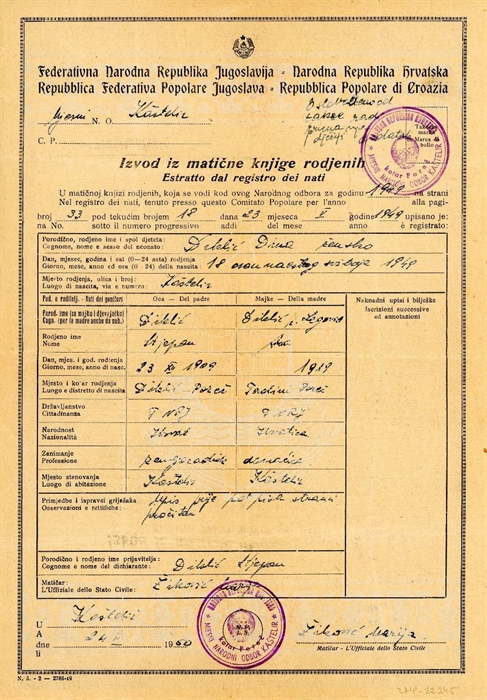 Federativna Narodna Republika Jugoslavija - Narodna Republika Hrvatska
Repubblica Federativa Popolare Jugoslava - Repubblica Popolare di Croazia
Mjesni N. O. Kaštelir
C. P.
Taksena marka
Marca di bollo
Izvod iz matične knjige rodjenih
Estratto dal registro dei nati
U matičnoj knjizi rodjenih, koja se vodi kod ovog Narodnog odbora za godinu 1949 na strani
Nel registro dei nati, tenuto presso questo Comitato Popolare per l'anno alla pagi-
broj 33 pod tekućim brojem 18 dana 23 mjeseca V godine 1949 upisano je:
na No. sotto il numero progressivo addi del mese anno è registrato:
Porodično, rodjeno ime i spol djeteta:
Cognome, nome e sesso del neonato:
Dina žensko
Dan, mjesec, godina i sat (0—24 sata) rodjenja
Giorno, mese, anno ed ora (0 - 24) della nascita
18 osamnaestog svibnja 1949
Mjesto rodjenja, ulica i broj:
Luogo di nascita, via e numero:
Kaštelir
Pod. o roditelj. - Dati dei genitori
Oca — Del padre
Majke — Della madre
Naknadni upisi i bilješke
Iscrizioni successive
ed annotazioni
Rodjeno ime
Nome
Stjepan
Dan, mjes. i god. rodjenja
Giorno, mese, anno di nasc.
23 XII 1909
1919
Luogo e distretto di nascita
Poreč
Poreč
Državljanstvo
Cittadinanza
FNRJ
FNRJ
Narodnost
Nazionalità
Hrvat
Hrvatica
Zanimanje
Professione
zemljoradnik
domaćica
Mjesto stanovanja
Luogo di abitazione
Kaštelir
Kaštelir
Primjedbe i ispravci griješaka
Osservazioni e rettifiche:
Upis prije potpisa stranci
pročitan
Porodično i rodjeno ime prijavitelja:
Cognome e nome del dichiarante:
Stjepan
Matičar:
L'Ufficiale dello Stato Civile:
Žiković Marija
U
A
Kaštelir
dne
li
1950
MJESNI NARODNI ODBOR KAŠTELIR
kotar Poreč
Žiković Marija
Matičar - L'Ufficiale dello Stato Civile
N. š. - 2 — 2786-49